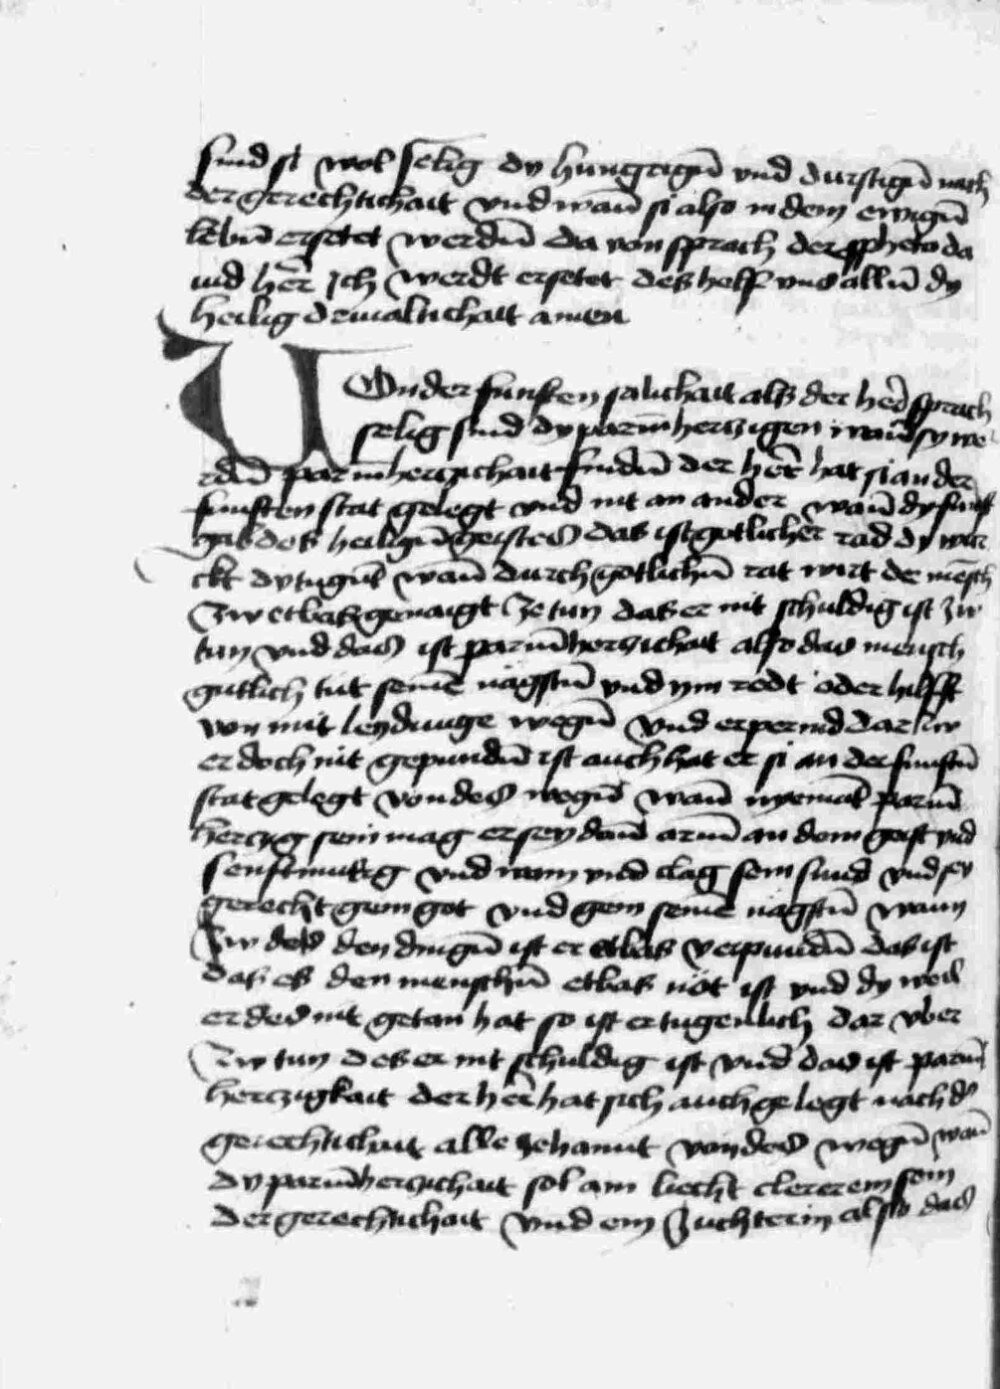 sind si wol selig dy hungrigū vnd durstigū nach
der gerechtichait vnd wañ si also in dem ewigū
lebū ersetet werdū da von sprach der ꝓpheta da
uid her̄ Jch werdt ersetet des helf vns allū dy
heilig driualtichait amen
Von der funften salichait als der her̄ sprach
selig sind dy parm̄hertzigen wañ sy we
rdū parm̄hertzichait findū der her̄ hat si an der
funften stat gelegt vnd nit an ander wañ dy funft
gab des heiligū geistes das ist gotlicher rad dy wür
ckt dy tugūt wañ durch gotlichū rat wirt de mēsch
zw etbas genaigt ze tun das er nit schuldig ist zw
tun vnd das ist parm̄hertzichait also das mensch
gutlich tut seinē nagstū vnd ym redt oder hilfft
von mit leydunge wegū vnd er perind dar zw
er doch nit gepundū ist auch hat er si an der funftū
stat gelegt von des wegū wañ nyemāt parm̄
hertzig sein mag er sey dañ arm̄ an dem geist vnd
senftmutig vnd wain vnd clag sein sund vnd sey
gerecht gein got vnd gein seinē nagstū wann
Zw des den dingū ist er etbas verpundū das ist
das es den menschū etbas not ist vnd dy weil
er des nit getan hat so ist er tugenlich dar vber
Zw tun des er nit schuldig ist vnd das ist parm̄
hertzigkait der her̄ hat sich auch gelegt nach d'
gerechtichait alle zehannt von des wegū wañ
dy parm̄hertzichait sol am liecht clerer sein
der gerechtichait vnd ein Zuchterin also das